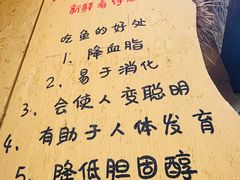 新鲜有得
吃鱼的好处
1、降血脂
2、易于消化
3、会使人变聪明
4、有助于人体发育
5、降低胆固醇